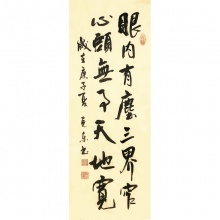 眼内有塵三界窄
心頭無事天地寬
歲在庚子夏